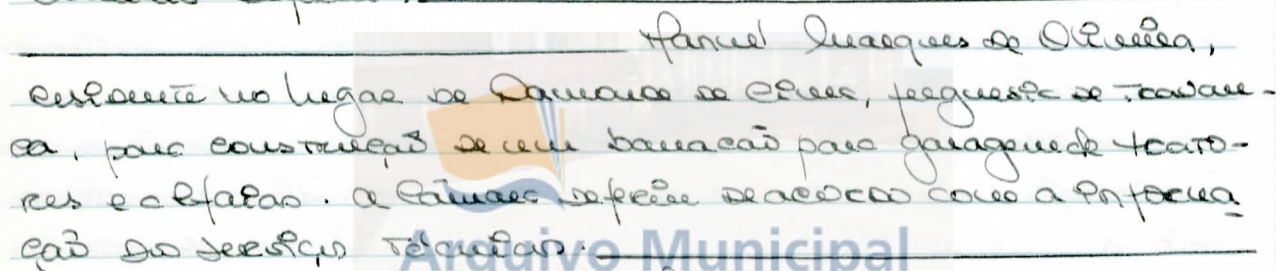 Manuel Marques de Oliveira,
residente no lugar de Damonde de Cima, freguesia de Travan-
ca, para construção de um barracão para garagem de tracto-
res e alfaias. A Câmara deferiu de acordo com a informa
ção dos Serviços Técnicos.
Arquivo Municipal